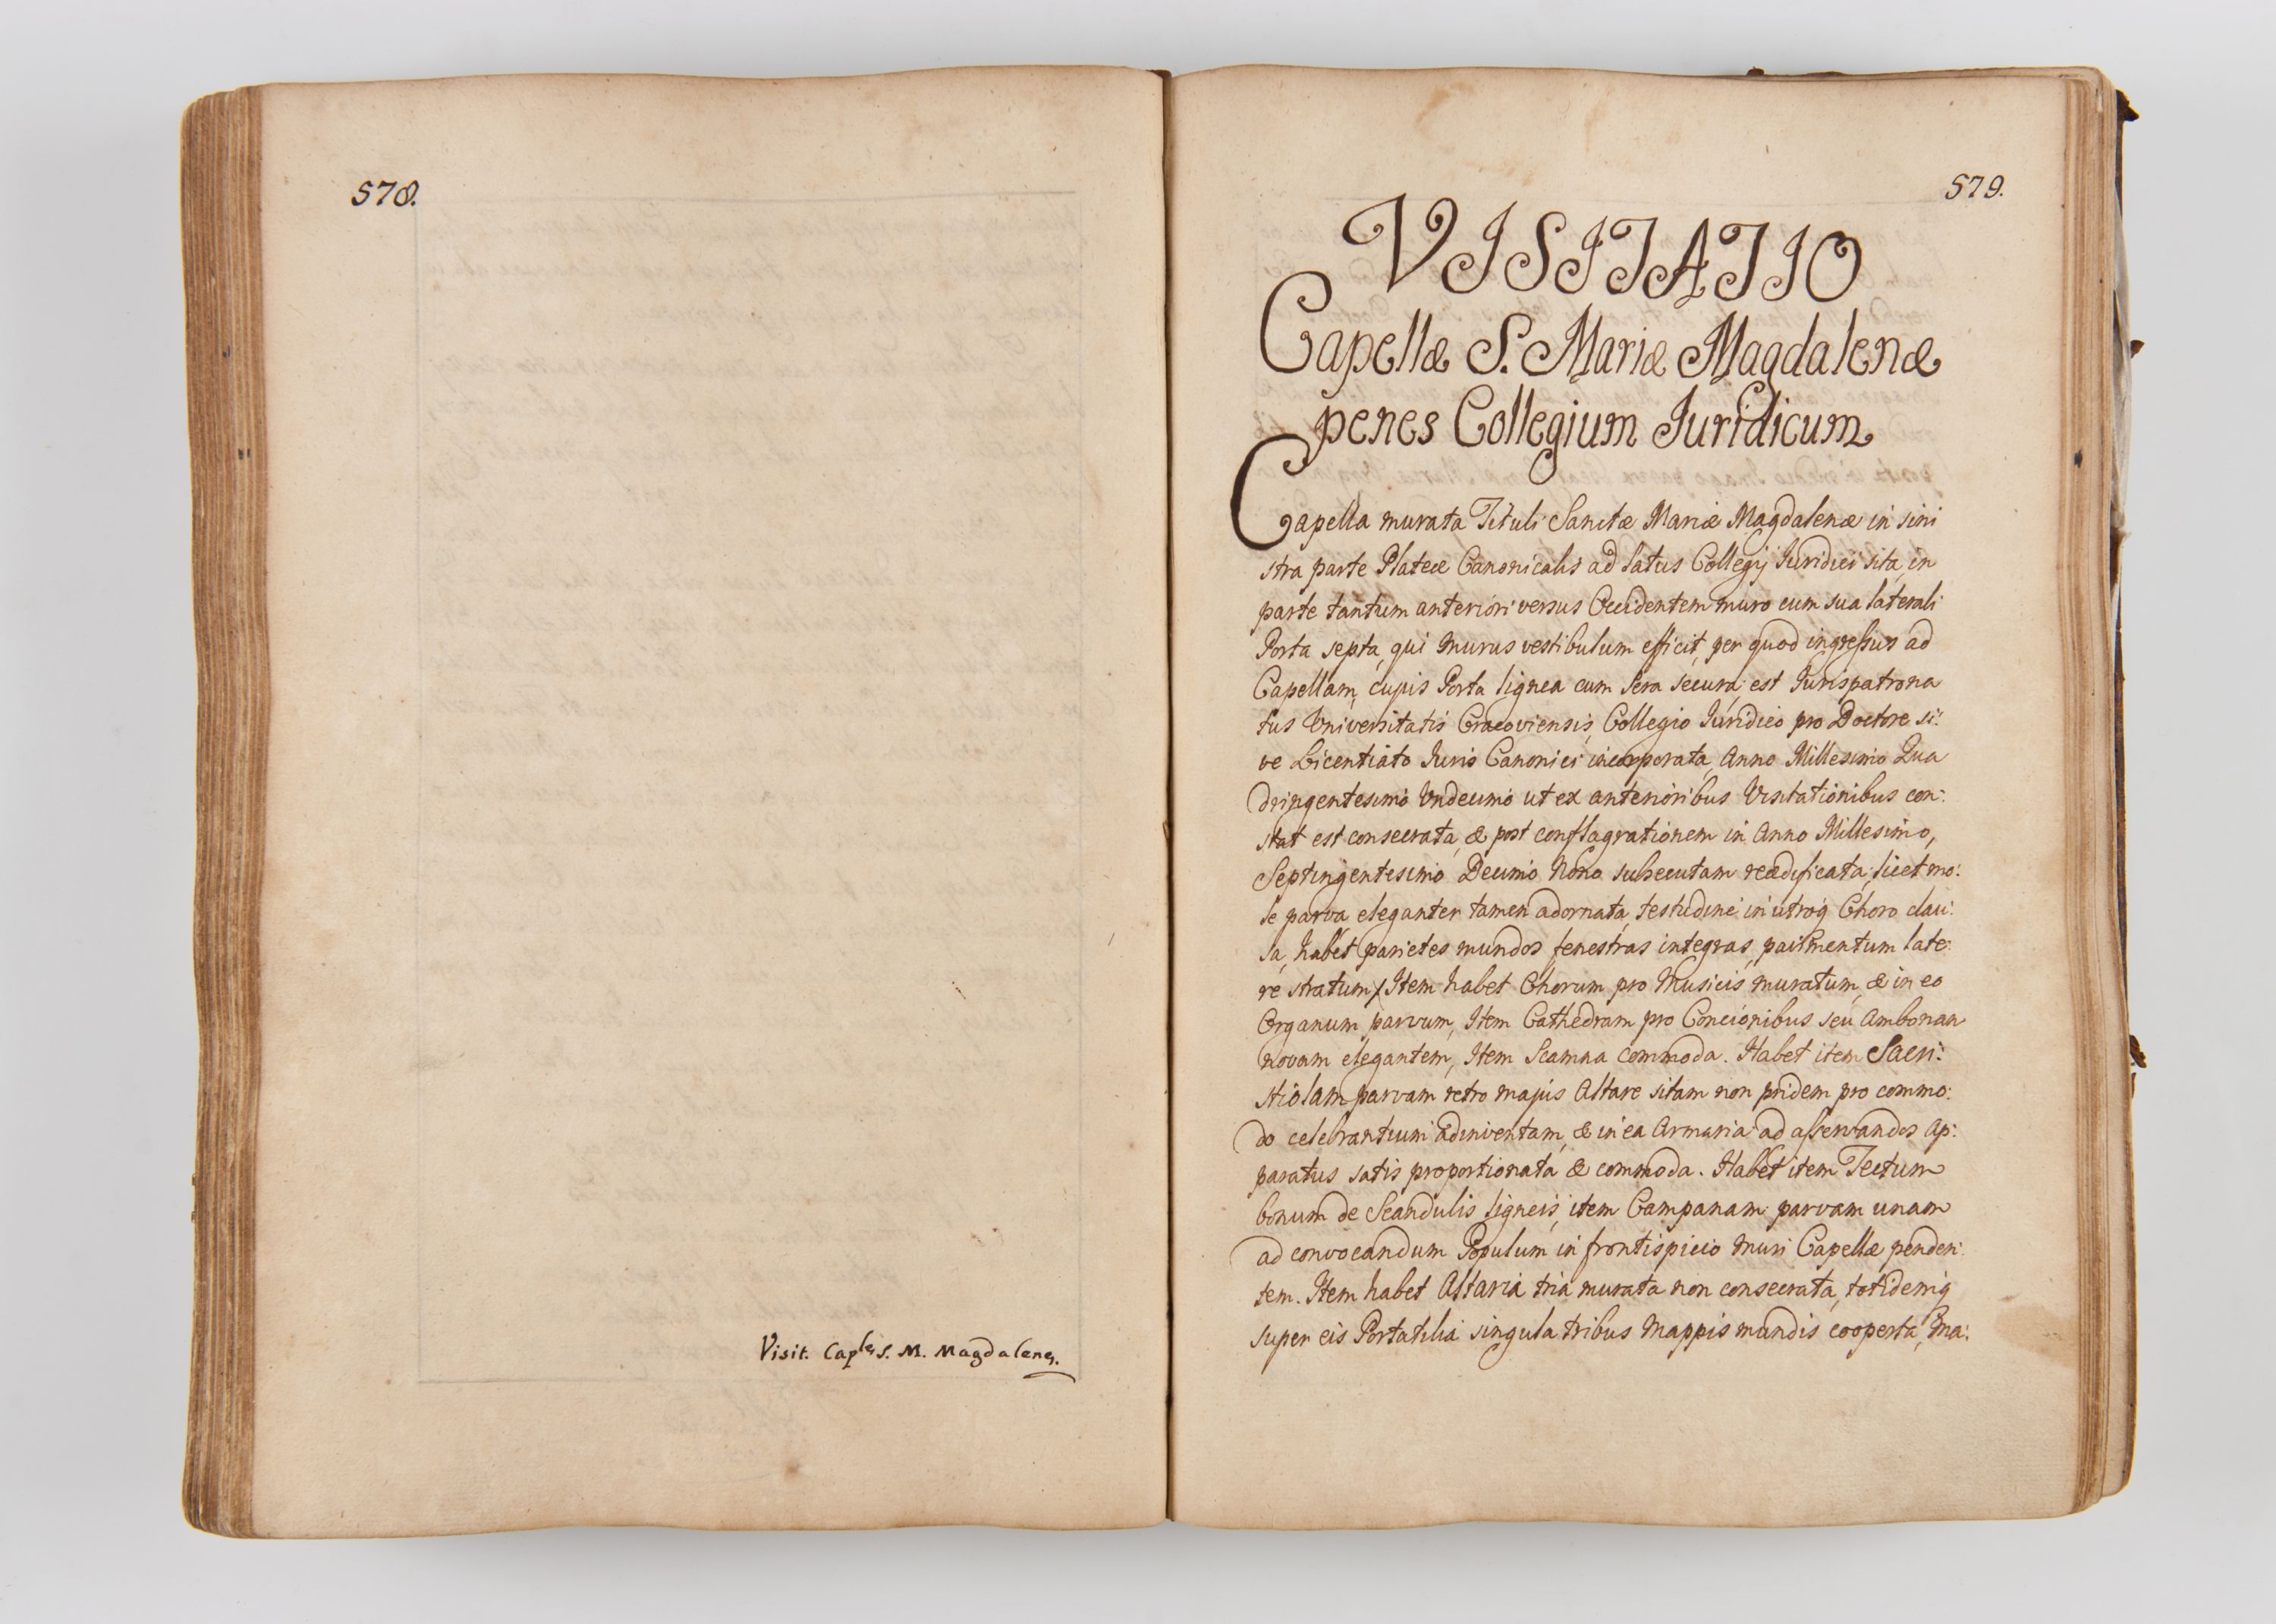 578.
Visit. Caplę S. M. Magdalenę.
579.
VISITATIO
Capellæ S. Mariæ Magdalenæ
penes Collegium Juridicum
Capella murata Tituli Sanctæ Mariæ Magdalenæ in sini
stra parte Plateæ Canonicalis ad latus Collegij Juridici sita, in
parte tantum anteriori versus Occidentem muro cum sua laterali
Porta septa, qui murus vestibulum efficit, per quod ingressus ad
Capellam, cujus Porta lignea cum sera secura, est Jurispatrona
tus Universitatis Cracoviensis, Collegio Juridico pro Doctore si:
ve Licentiato Juris Canonici incorporata, Anno Millesimo Qua
dringentesimo Undecimo ut ex anterioribus Visitationibus con:
stat est consecrata, & post conflagrationem in Anno Millesimo,
Septingentesimo Decimo Nono subsecutam reædificata, licet mo:
le parva eleganter tamen adornata, testudine in utroq Choro clau:
sa, habet parietes mundos, fenestras integras, pavimentum late:
re stratum, Item habet Chorum pro Musicis muratum, & in eo
Organum parvum, Item Cathedram pro Concionibus seu Ambonam
novam elegantem, Item Scamna commoda. Habet item Sacri:
stiolam parvam retro majus Altare sitam non pridem pro commo:
do celebrantium adinventam, & in ea Armaria ad asservandos Ap:
paratus satis proportionata & commoda. Habet item Tectum
bonum de Scandulis ligneis, item Campanam parvam unam
ad convocandum Populum in frontispicio muri Capellæ penden:
tem. Item habet Altaria tria murata non consecrata, totidemq
super eis Portatilia singula tribus Mappis mundis cooperta, Ma: